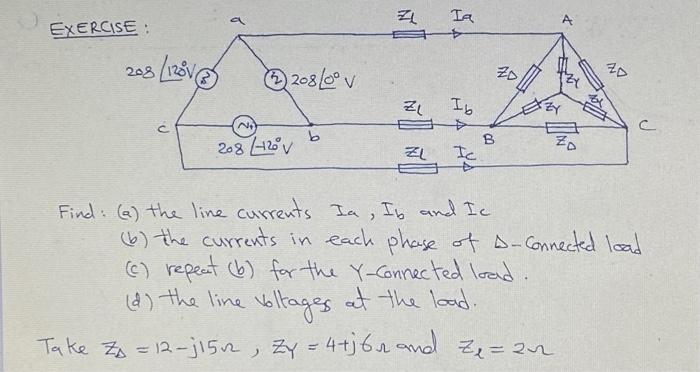 EXERCISE :
a
Zl
Ia
A
208 ∠120° V
208 ∠0° V
ZΔ
ZY
ZΔ
Zl
Ib
ZY
ZY
c
208 ∠-120° V
b
B
ZΔ
C
Zl
Ic
Find : (a) the line currents Ia , Ib and Ic
(b) the currents in each phase of Δ-Connected load
(c) repeat (b) for the Y-Connected load .
(d) the line voltages at the load.
Take ZΔ = 12-j15Ω , ZY = 4+j6Ω and Zl = 2Ω